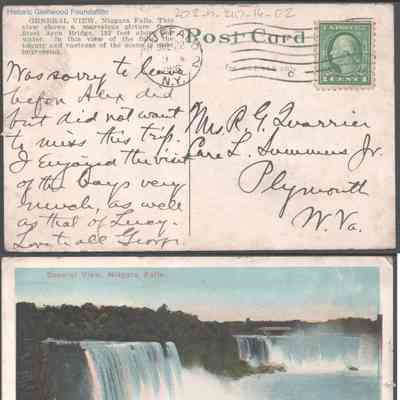 Historic Glenwood Foundation
GENERAL VIEW, Niagara Falls. This
view shows a marvelous picture from
Steel Arch Bridge, 192 feet above the
water. In this view of the falls the
beauty and vastness of the scene is most
impressive.
Post Card
N.Y.
1 CENT 1
Was sorry to leave
before Alex did
but did not want
to miss this trip.
I Enjoyed the visit
of the boys very
much, as well
as that of Lucy.
Love to all George.
Mrs. R. G. Quarrier
Care L. Summers Jr.
Plymouth
W. Va.
General View, Niagara Falls.